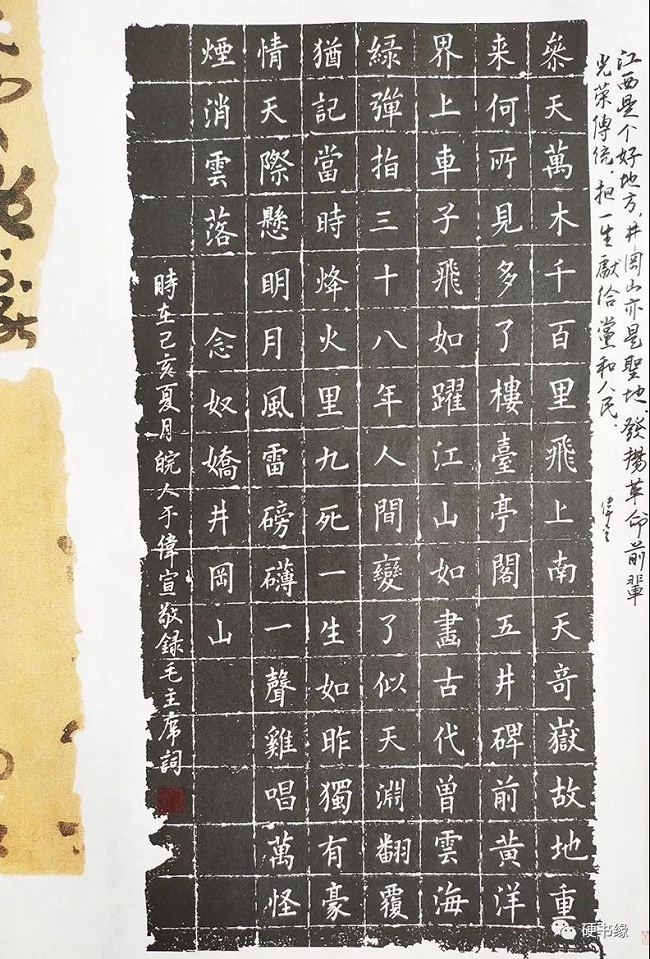 江西是个好地方，井岡山亦是聖地。發揚革命前輩
光荣傳统，把一生獻给黨和人民.
參天萬木千百里飛上南天奇嶽故地重
来何所見多了樓臺亭閣五井碑前黄洋
界上車子飛如躍江山如畫古代曾雲海
綠彈指三十八年人間變了似天淵翻覆
猶記當時烽火里九死一生如昨獨有豪
情天際懸明月風雷磅礴一聲雞唱萬怪
煙消雲落 念奴嬌井岡山
時在己亥夏月皖人于偉宣敬録毛主席詞
硬书缘